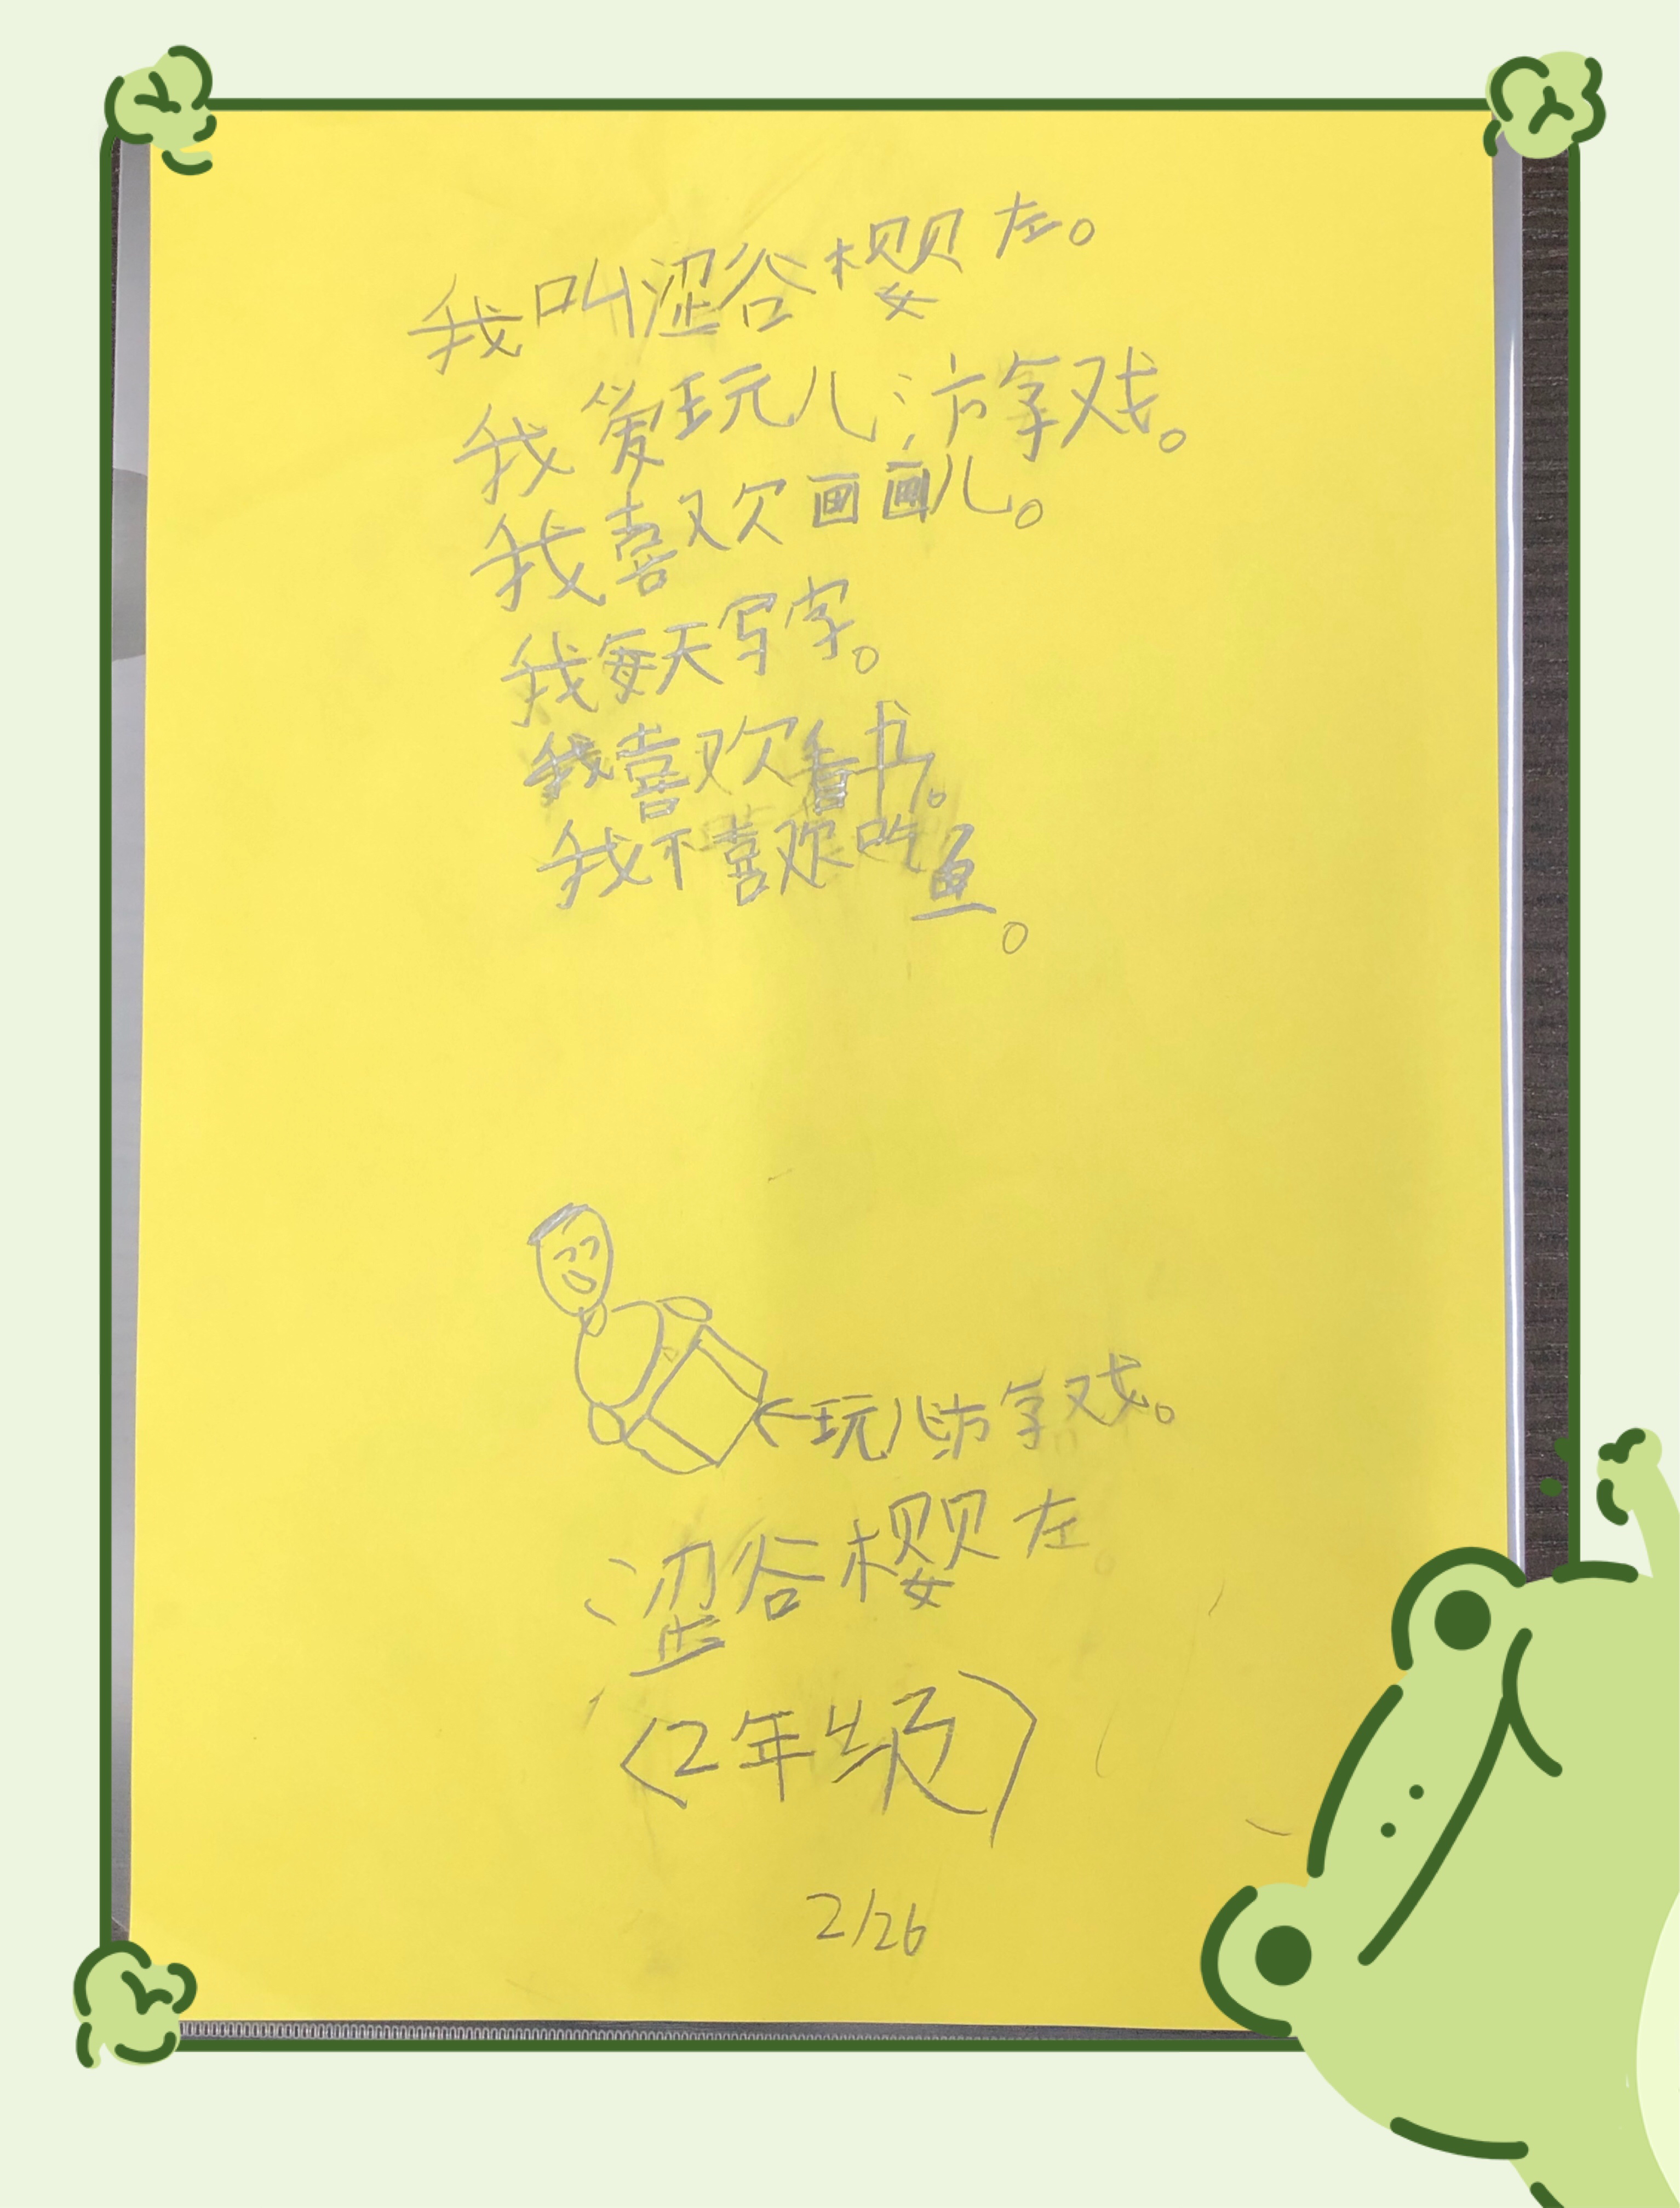 我叫涩谷樱左。
我爱玩儿游戏。
我喜欢画画儿。
我每天写字。
我喜欢看书。
我不喜欢吃鱼。
玩儿游戏。
涩谷樱左
(2年级)
2/26